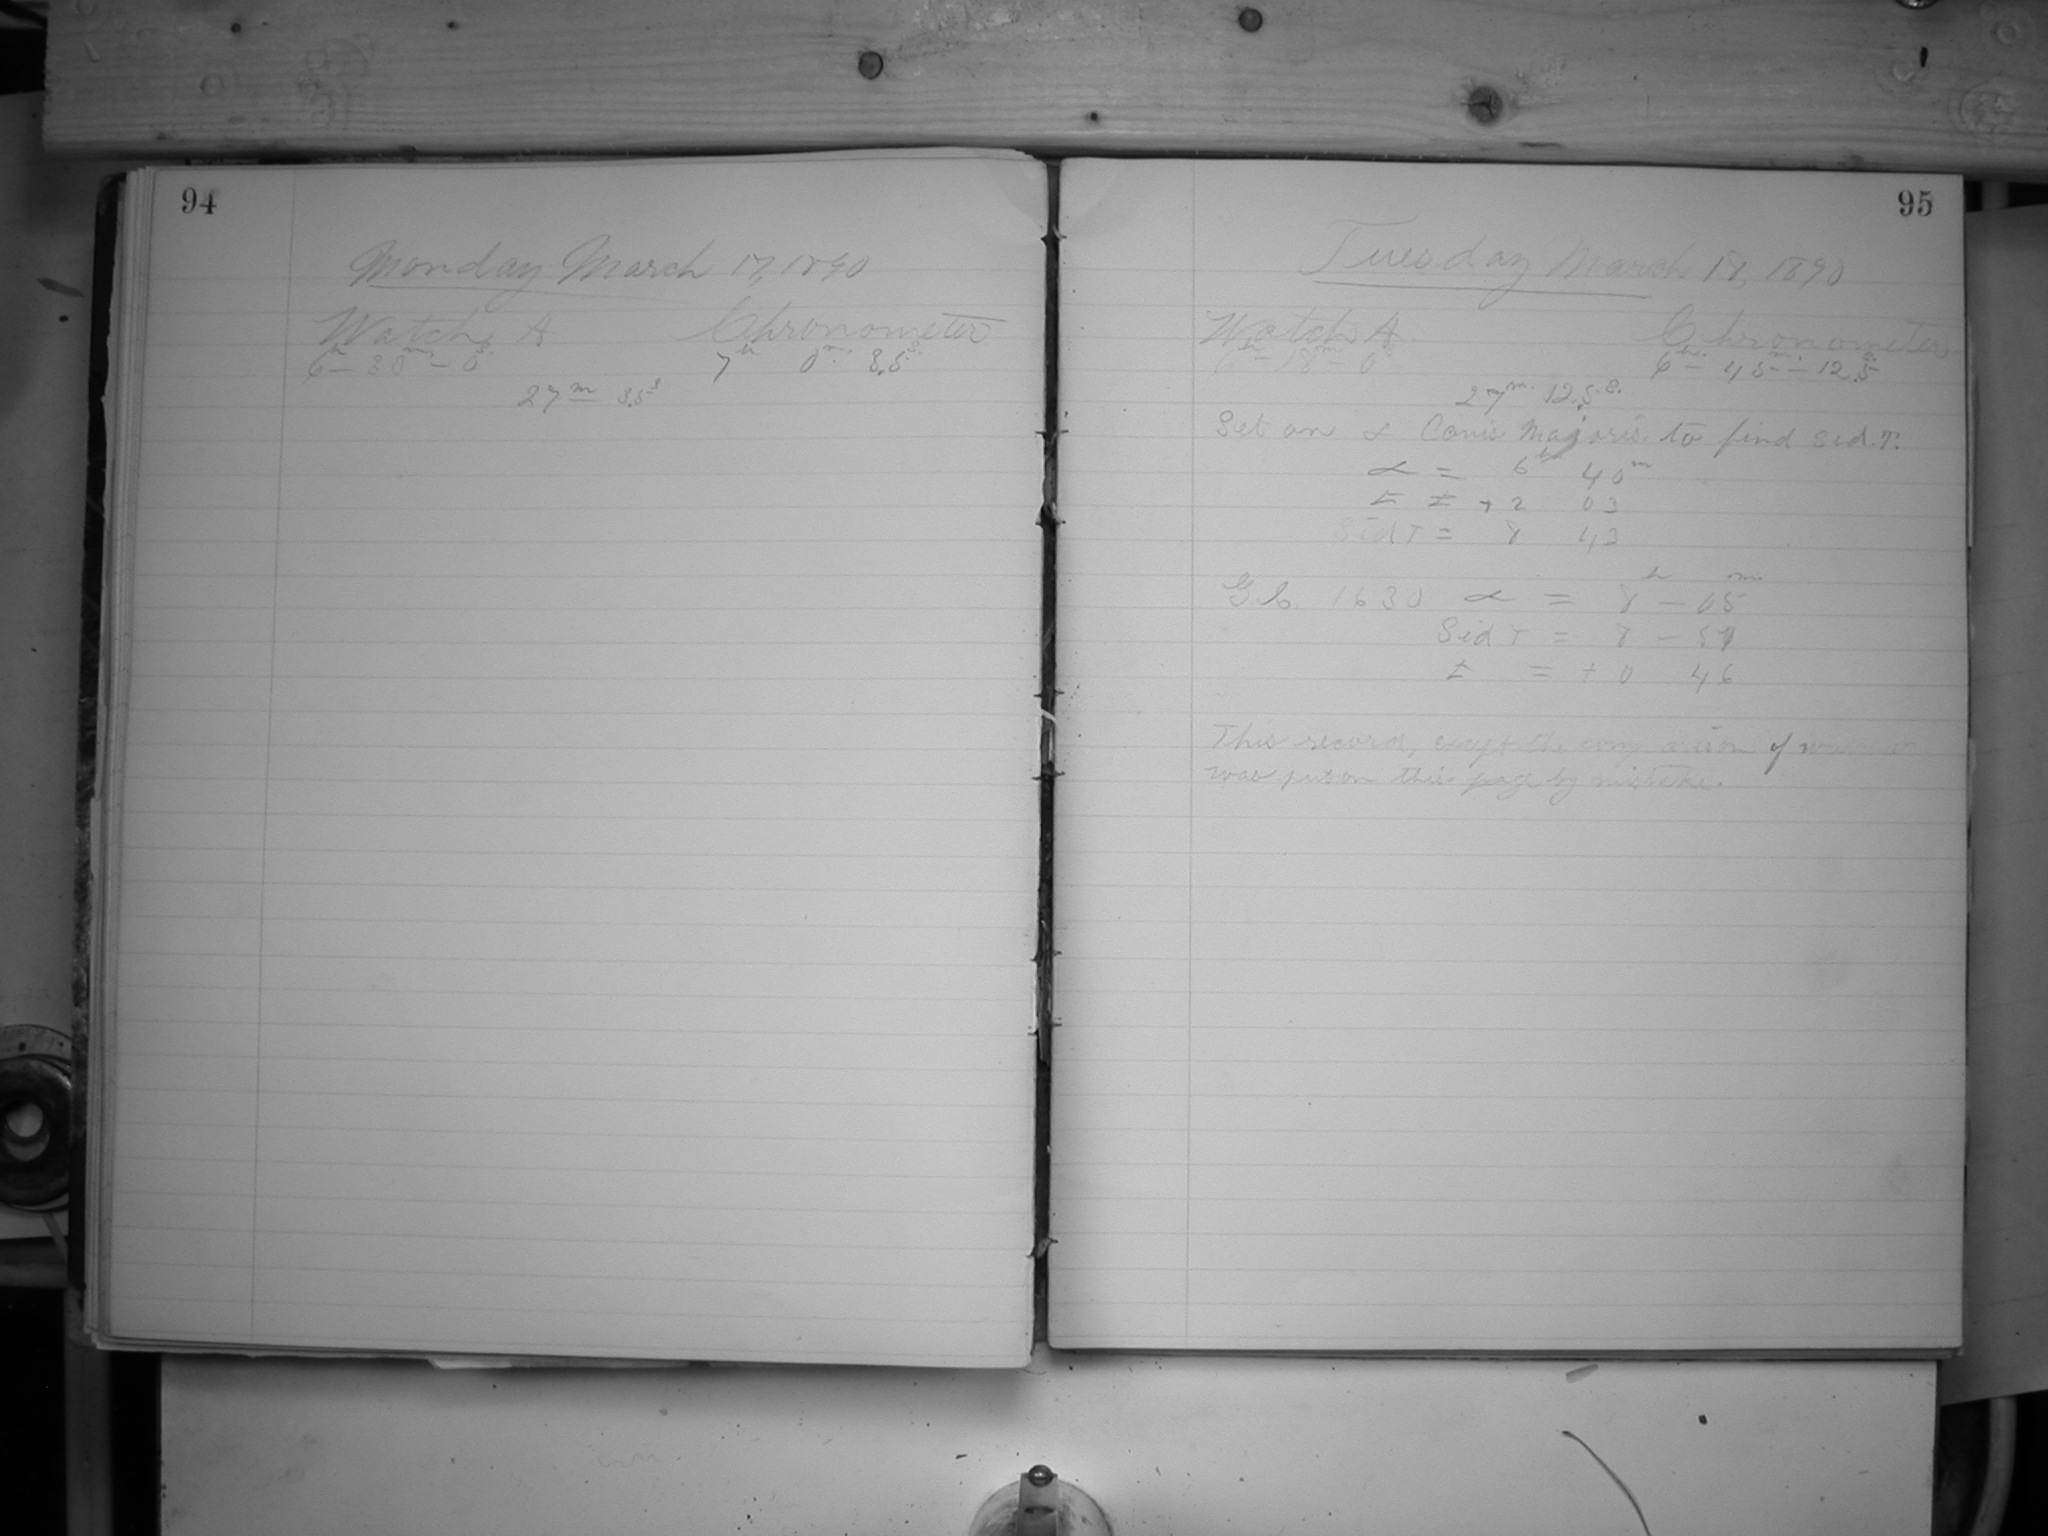 94
Monday March 17, 1890
Watch A Chronometer
6h - 33m - 0s 7h 0m 3.5s
27m 3.5s
95
Tuesday March 18, 1890
Watch A. Chronometer
6h - 18m - 0s 6h - 45m - 12.5s
27m 12.5s.
Set on α Canis Majoris to find Sid. T.
α = 6h 40m
t = + 2 03
Sid T = 8 43
G.C. 1630 α = 8h - 05m
Sid T = 8 - 51
t = + 0 46
This record, except the comparison of watches
was put on this page by mistake.